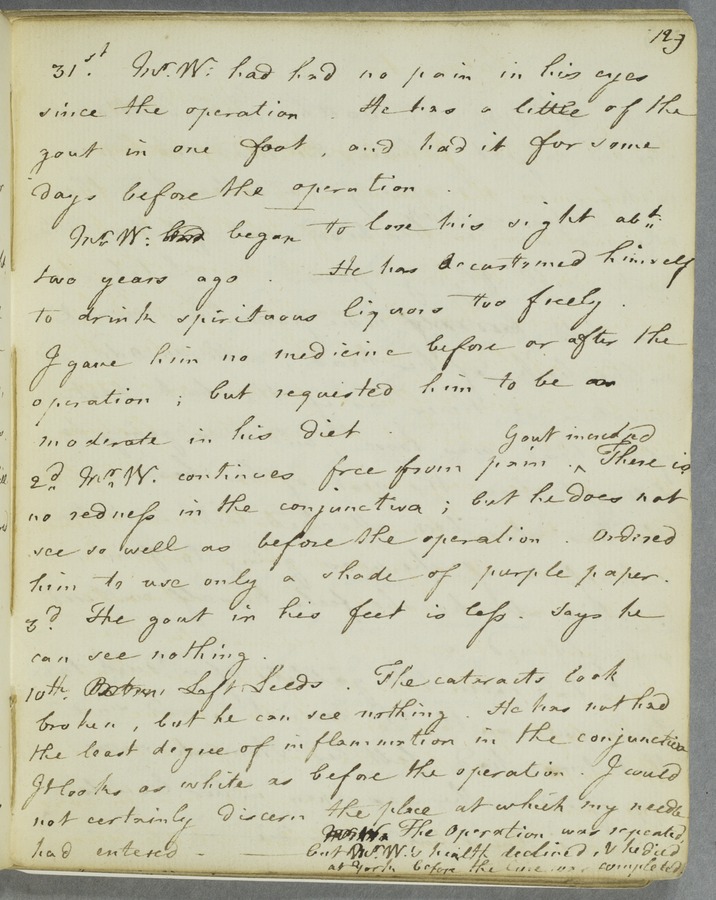 129
31st. Mr. W: had had no pain in his eyes
since the operation. He has a little of the
gout in one foot, and had it for some
days before the operation.
Mr. W: had began to lose his sight abt.
two years ago. He has accustomed himself
to drink spirituous liquors too freely.
I gave him no medicine before or after the
operation; but requested him to be
moderate in his diet.
Gout increased
2d. Mr. W. continues free from pain. ^ There is
no redness in the conjunctiva; but he does not
see so well as before the operation. Ordered
him to use only a shade of purple paper.
3d. The gout in his feet is less. Says he
can see nothing.
10th. Left Leeds. The cataracts look
broken, but he can see nothing. He has not had
the least degree of inflammation in the conjunctiva
It looks as white as before the operation. I could
not certainly discern the place at which my needle
had entered
The Operation was repeated,
but Mr. W.'s health declined, & he died
at York before the cure was completed.